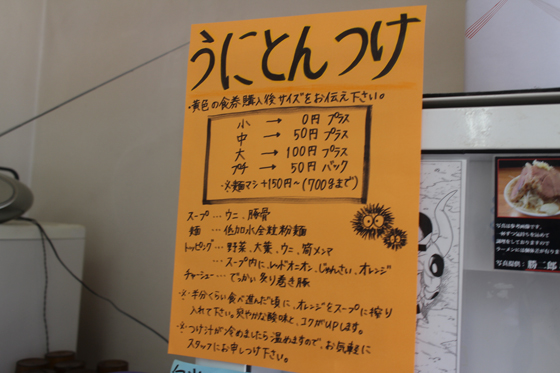 うにとんつけ
・黄色の食券購入後サイズをお伝え下さい。
小 → 0円 プラス
中 → 50円 プラス
大 → 100円 プラス
プチ → 50円 バック
・※麺マシ+150円~(700gまで)
スープ…ウニ、豚骨
麺 …低加水全粒粉麺
トッピング…野菜、大葉、ウニ、筒メンマ
…スープ内に、レッドオニオン、じゅんさい、オレンジ
チャーシュー…でっかい炙り巻き豚
・※・半分くらい食べ進んだ頃に、オレンジをスープに搾り
入れて下さい。爽やかな酸味と、コクがUPします。
・※・つけ汁が冷めましたら温めますので、お気軽に
スタッフにお申しつけ下さい。
写真提供:勝一郎